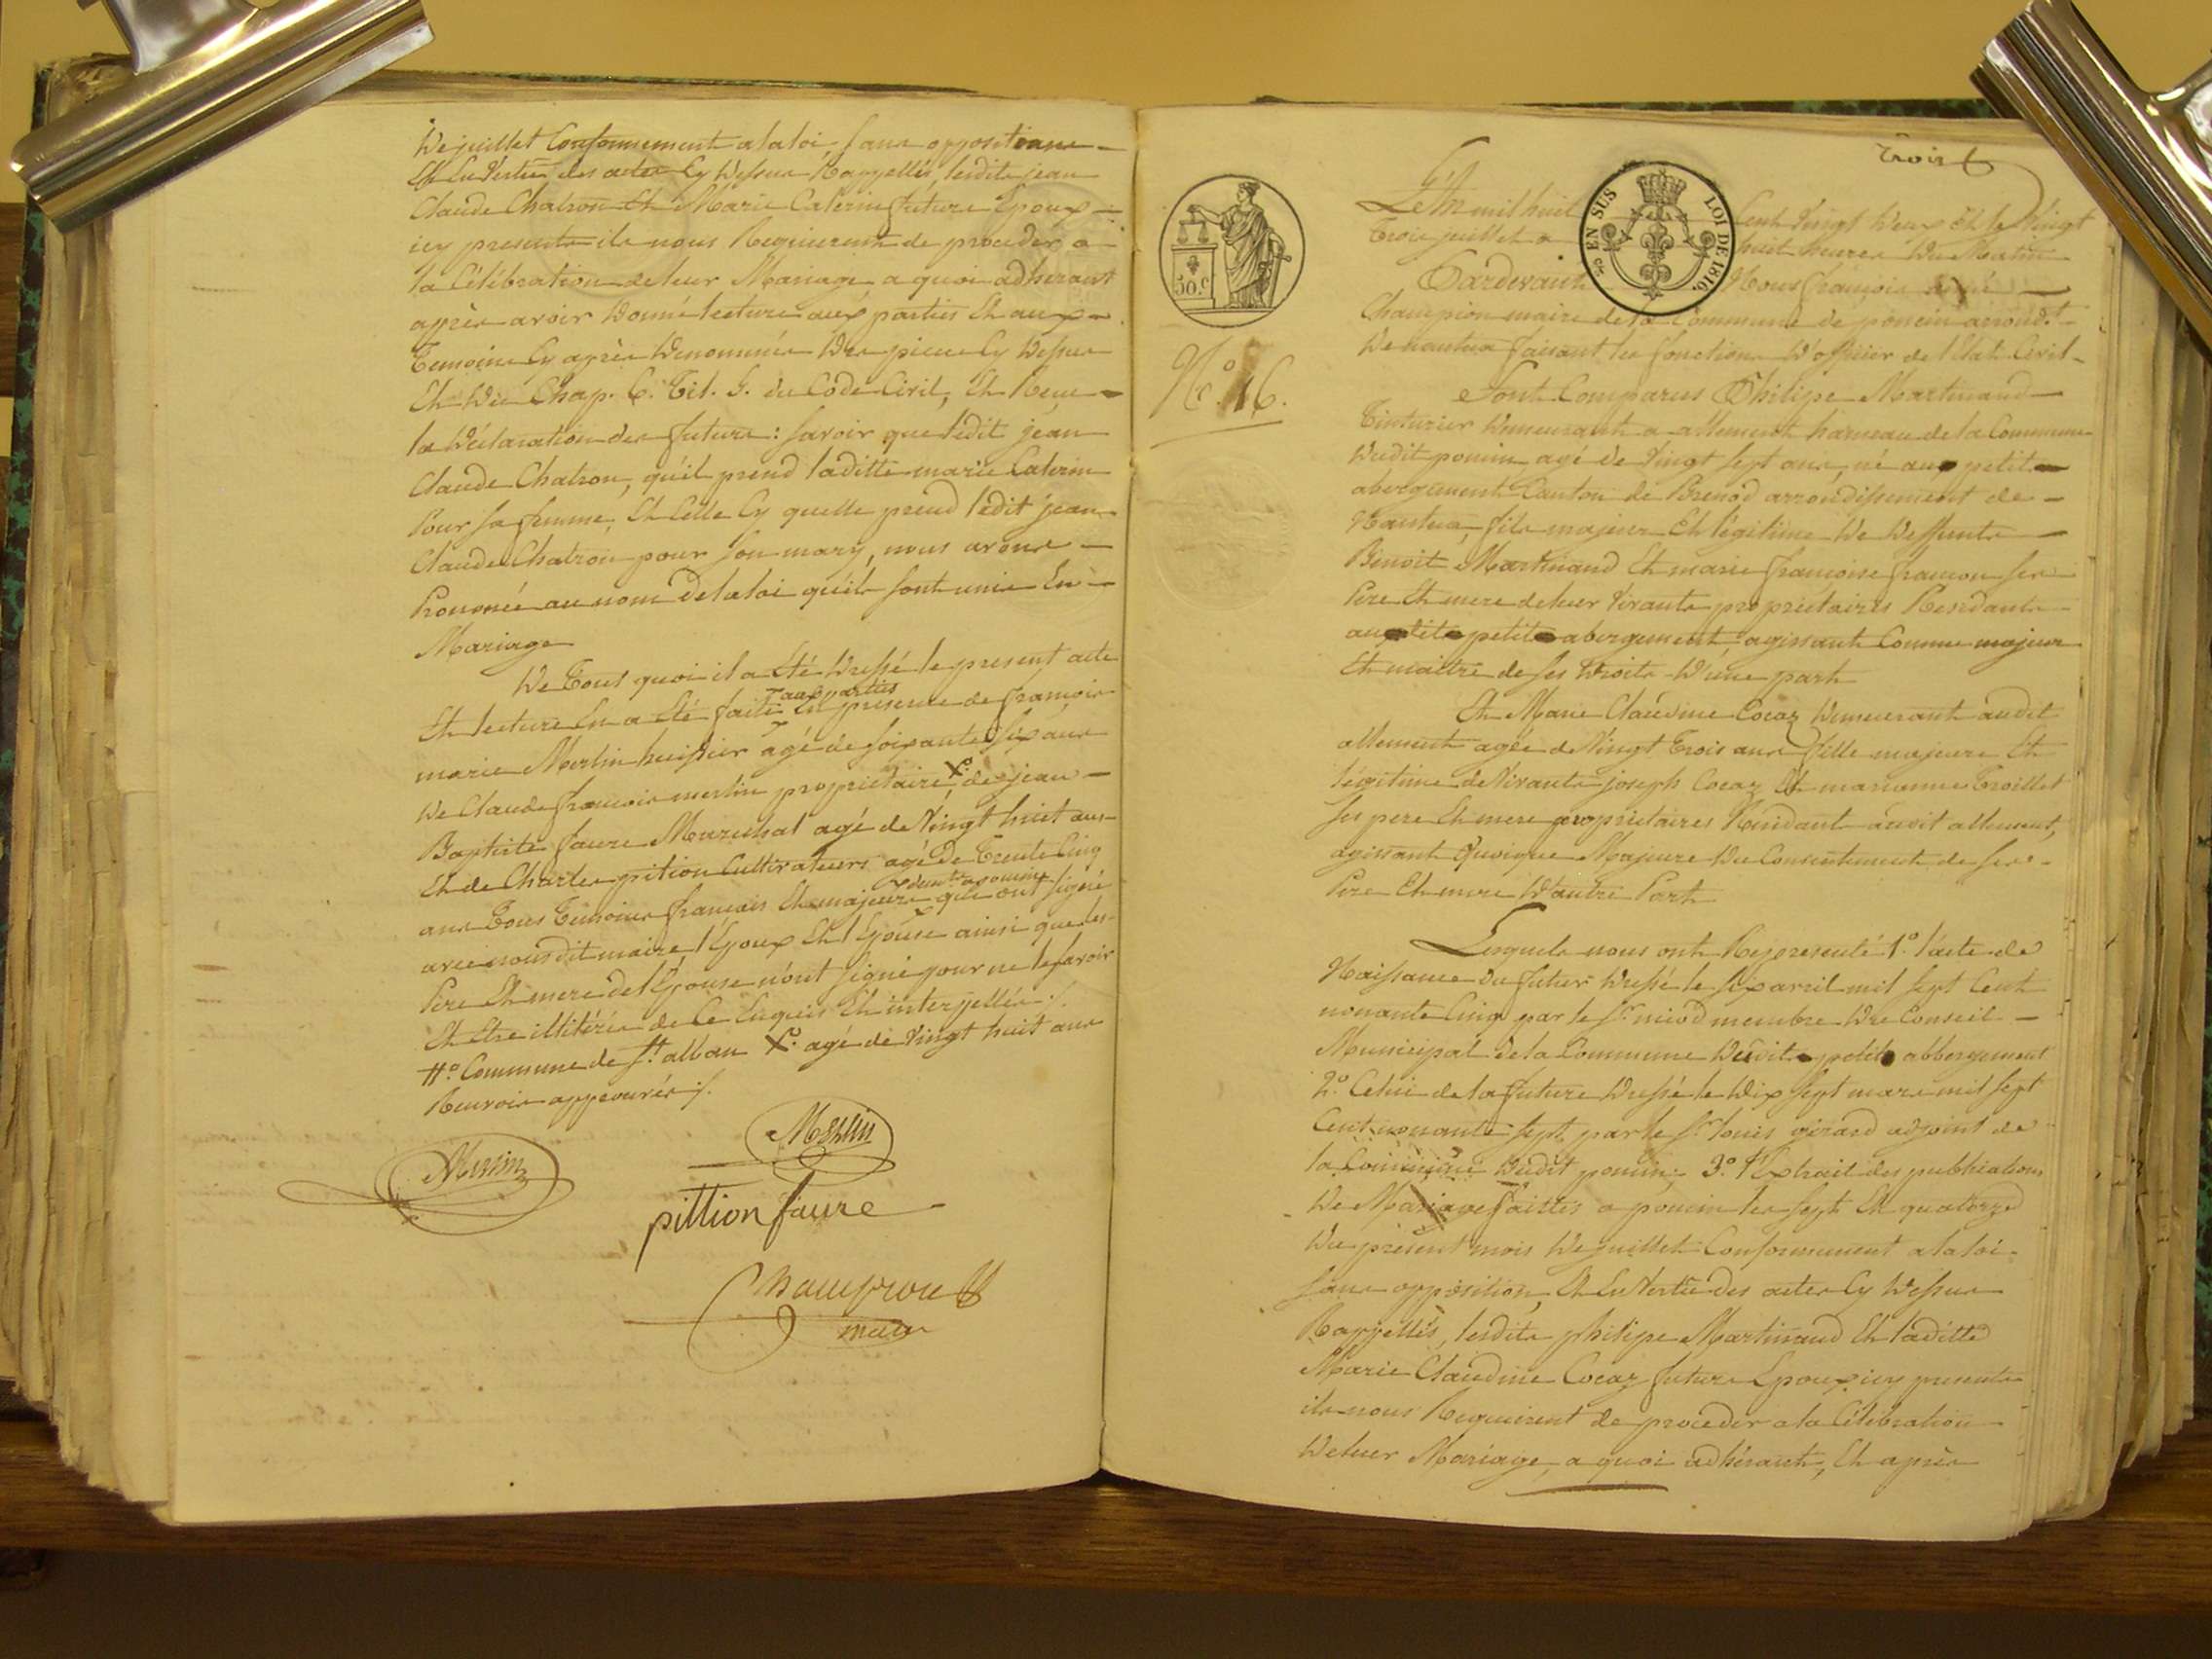 de juillet Conformement a la loi, sans oppositions
Et En Vertu des actes Cy dessus Rappellés, lesdits jean
Claude Chatron Et Marie Caterin future Epoux
icy presents ils nous Requierent de proceder a
la Célébration de leur Mariage, a quoi adherant
après avoir donné lecture aux parties Et aux
Temoins Cy après denommés des pieces Cy dessus
Et du Chap. 6. Tit. 5. du Code Civil, Et Reçu
la déclaration des futurs: savoir que ledit jean
Claude Chatron, qu'il prend laditte marie Caterin
Pour sa femme, Et Celle Cy quelle prend ledit jean
Claude Chatron pour son mary, nous avons
Prononcé au nom de la loi qu'ils sont unis En
Mariage
De Tout quoi il a Eté dressé le present acte
aux parties
Et lecture En a Eté faite En presence de françois
marie Merlin huissier agé de soixante six ans
de Claude françois merlin proprietaire X°. de jean
Baptiste faure Marechal agé de Vingt huit ans
Et de Charles pition Cultivateurs agé De Trente Cinq
ans Tous Temoins francais Et majeurs qui ont signé
avec nous dit maire, l'Epoux Et l'Epouse ainsi que les
Pere Et mere de l'Epouse n'ont signé pour ne le savoir
Et Etre illitérés de Ce Enquis Et interpellés ./.
#° Commune de St. alban X°. agé de Vingt huit ans
Renvois approuvés ./.
Merlin
Merlin
pittion faure
Champion
maire
Trois
50.C
EN SUS LOI DE 1816
N.° 16.
L'An mil huit Cent Vingt deux Et le Vingt
Trois juillet a huit heures du Matin
Pardevant Nous françois
Champion maire de la Commune de poncin arrondt.
De nantua faisant les fonctions d'officier de l'Etat Civil
Sont Comparus Philipe Martinand
Tinturier demeurant a allement hameau de la Commune
dudit poncin agé de Vingt sept ans, né au petit
abergement Canton de Brenod arrondissement de
Nantua, fils majeur Et légitime de deffunts
Benoit Martinand Et marie françoise françon ses
Pere Et mere de leur Vivants proprietaires Residants
au dit petit abergement, agissant Comme majeur
Et maitre de ses droits d'une part
Et Marie Claudine Cocaz demeurant audit
allement agée de Vingt Trois ans fille majeure Et
légitime de Vivants joseph Cocaz Et marianne Troillet
ses pere Et mere proprietaires Residant audit allement,
agissant quoique Majeure du Consentement de ses
Pere Et mere d'autre Part
Lesquels nous ont Representé 1.° l'acte de
Naissance du futur dressé le six avril mil sept Cent
nonante Cinq par le Sr. miod membre du Conseil
Municipal de la Commune dudit petit abbergement
2.° Celui de la future dressé le dix sept mars mil sept
Cent nonante sept par le Sr. louis girard adjoint de
la Commune dudit poncin; 3.° l'Extrait des publications
de Mariage faittes a poncin les sept Et quatorze
du présent mois de juillet Conformement a la loi
sans opposition, Et En Vertu des actes Cy dessus
Rappellés, lesdits philipe Martinand Et laditte
Marie Claudine Cocaz future Epoux icy presents
ils nous Requierent de proceder a la Célébration
de leur Mariage, a quoi adhérant, Et après